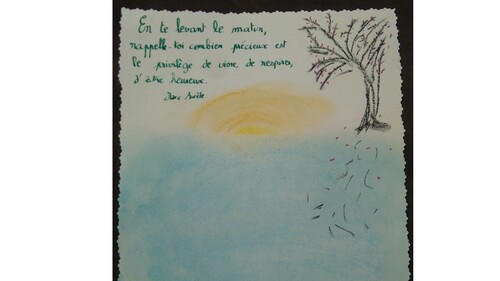 En te levant le matin,
rappelle-toi combien précieux est
le privilège de vivre, de respirer,
d'être heureux.
Marc Aurèle